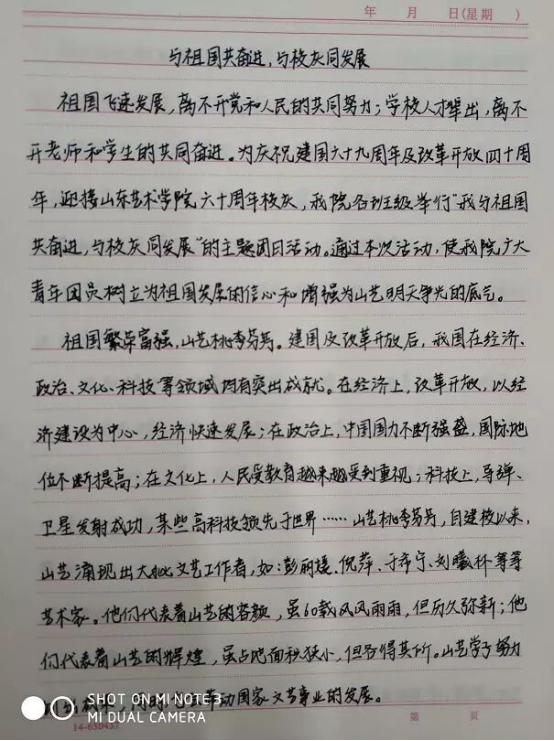 年 月 日(星期 )
与祖国共奋进,与校庆同发展
祖国飞速发展,离不开党和人民的共同努力;学校人才辈出,离不
开老师和学生的共同奋进。为庆祝建国六十九周年及改革开放四十周
年,迎接山东艺术学院六十周年校庆,我院各班级举行“我与祖国
共奋进,与校庆同发展”的主题团日活动。通过本次活动,使我院广大
青年团员树立为祖国发展的信心和增强为山艺明天争光的底气。
祖国繁荣富强,山艺桃李芬芳。建国及改革开放后,我国在经济、
政治、文化、科技等领域均有突出成就。在经济上,改革开放,以经
济建设为中心,经济快速发展;在政治上,中国国力不断强盛,国际地
位不断提高;在文化上,人民受教育越来越受到重视;科技上,导弹、
卫星发射成功,某些高科技领先于世界……山艺桃李芬芳,自建校以来,
山艺涌现出大批文艺工作者,如:彭丽媛、倪萍、于希宁、刘曦林等等
艺术家。他们代表着山艺的容颜,虽60载风风雨雨,但历久弥新;他
们代表着山艺的辉煌,虽占地面积狭小,但各得其所。山艺学子努力
动国家文艺事业的发展。
SHOT ON MI NOTE 3
MI DUAL CAMERA
第 页